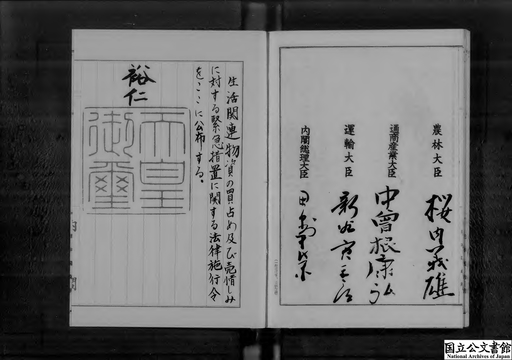 農林大臣 桜内義雄
通商産業大臣 中曾根康弘
運輸大臣 新谷寅三郎
内閣総理大臣 田中角栄
生活関連物資の買占め及び売惜しみ
に対する緊急措置に関する法律施行令
をここに公布する。
裕仁
天皇
御璽
国立公文書館
National Archives of Japan